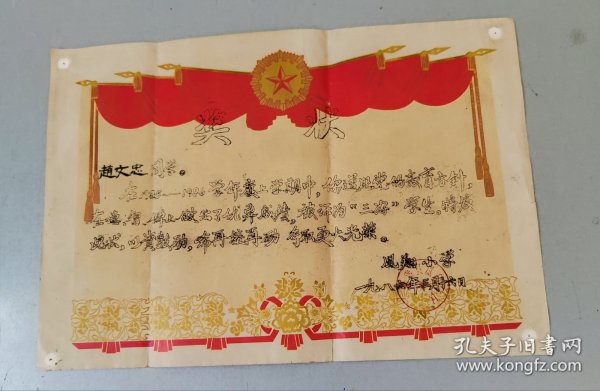 奖状
赵文忠 同学。
在1985—1986学年度上学期中，你遵照党的教育方针，
在德、智、体上做出了优异成绩，被评为“三好”学生，特发
此状，以资鼓励，希再接再励 争取更大光荣。
凤翔小学
一九八六年三月六日
孔夫子旧书网
www.kongfz.com